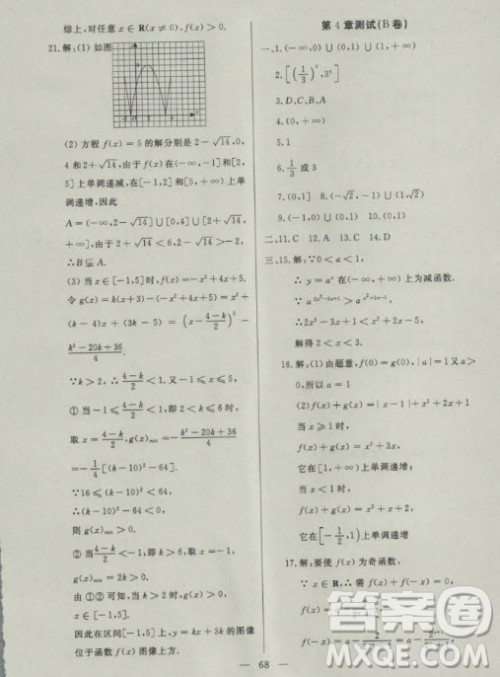 综上,对任意 x∈R(x≠0),f(x)>0.
21.解:(1) 如图
(2) 方程 f(x)=5 的解分别是 2-√14,0,
4 和 2+√14,由于 f(x) 在(-∞,-1]和[2,
5]上单调递减,在[-1,2]和[5,+∞)上单
调递增,因此
A=(-∞,2-√14]∪[0,4]∪[2+√14,
+∞),由于 2+√14<6,2-√14>-2,
∴B⫋A.
(3) 当 x∈[-1,5]时,f(x)=-x²+4x+5.
令 g(x)=k(x+3)-(-x²+4x+5)=x²+
(k-4)x+(3k-5)=(x-(4-k)/2)²-
(k²-20k+36)/4.
∵k>2,∴(4-k)/2<1.又 -1≤x≤5,
① 当 -1≤(4-k)/2<1,即 2<k≤6 时,
取 x=(4-k)/2,g(x)min=-(k²-20k+36)/4
=-1/4[(k-10)²-64].
∵16≤(k-10)²<64,
∴(k-10)²-64<0,
则 g(x)min>0.
②当(4-k)/2<-1,即 k>6 时,取 x=-1,
g(x)min=2k>0.
由 ①②可知,当 k>2 时,g(x)>0,
x∈[-1,5].
因此在区间[-1,5]上,y=k(x+3)的图像
位于函数 f(x)图像上方.
第 4 章测试(B 卷)
一、1.(-∞,0)∪(0,+∞)
2.[(1/3)^π,3^π]
3.D,C,B,A
4.(0,+∞)
5.1
6.1/3 或 3
7.(0,1) 8.(-√2,-1)∪(1,√2)
9.(-∞,0) 10.(-∞,-1)∪(0,1)
二、11.C 12.A 13.C 14.D
三、15.解:∵0<a<1,
∴y=aˣ 在(-∞,+∞)上为减函数.
∴2x²-3x+1<x²+2x-5.
解得 2<x<3.
16.解:(1)由题意,f(0)=g(0),|a|=1又a
>0,所以 a=1
(2) f(x)+g(x)=|x-1|+x²+2x+1
当 x≥1 时,
f(x)+g(x)=x²+3x,
它在[1,+∞)上单调递增;
当 x<1 时,
f(x)+g(x)=x²+x+2,
它在[-1/2,1)上单调递增
17.解:要使 f(x)为奇函数,
∵x∈R,∴需 f(x)+f(-x)=0,
答案圈
— 68 —